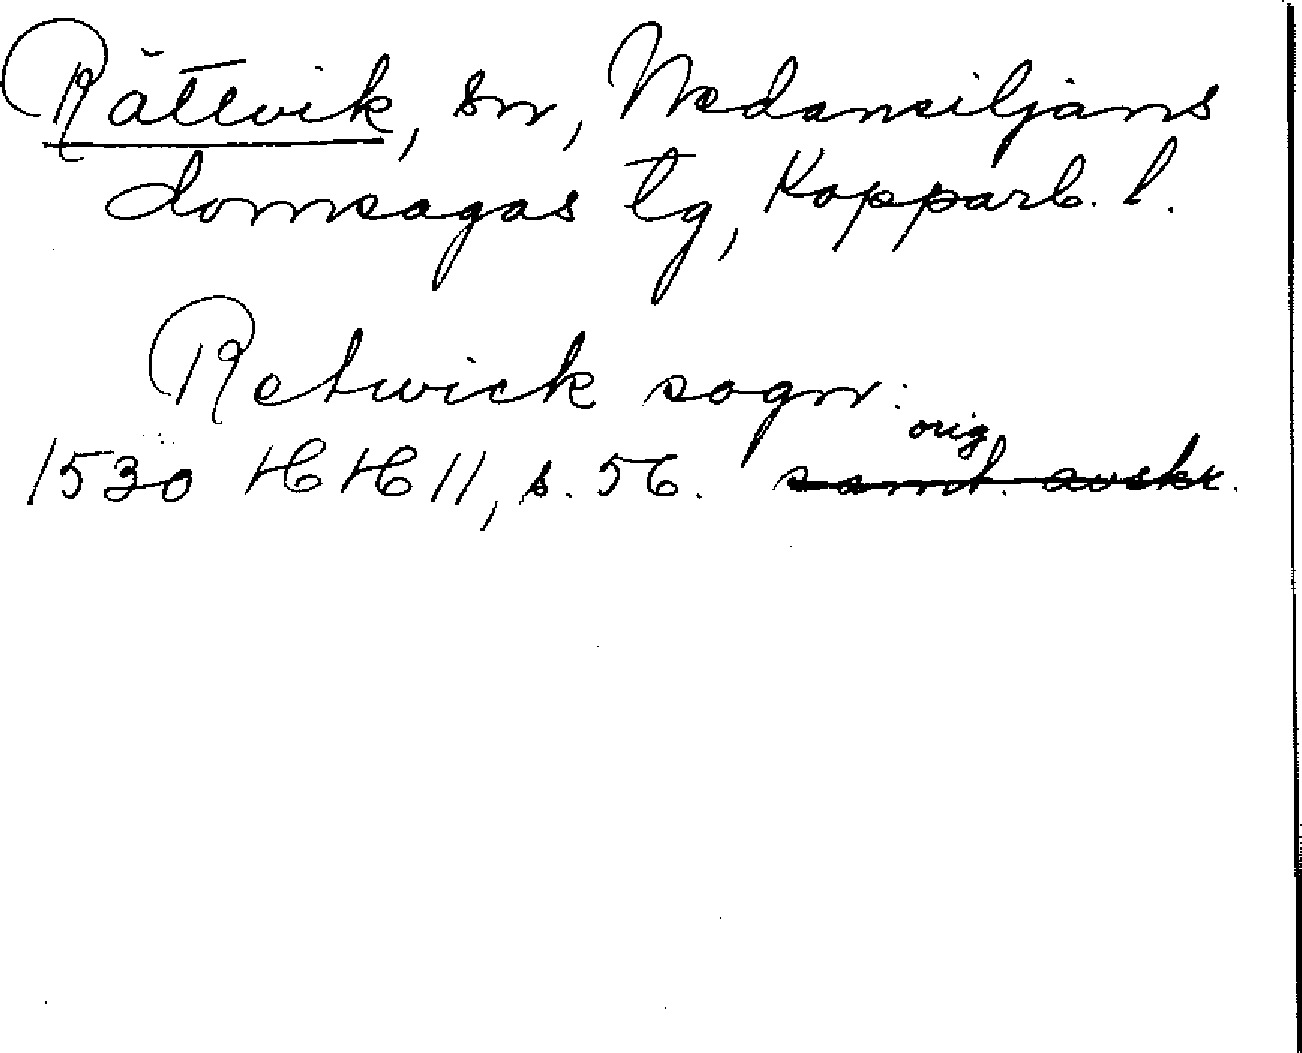 Rättvik, sn, Nedansiljans
domsagas tg, Kopparb. l.
Retwick sogn:
orig
1530 HH 11, s. 56. samt. avskr.